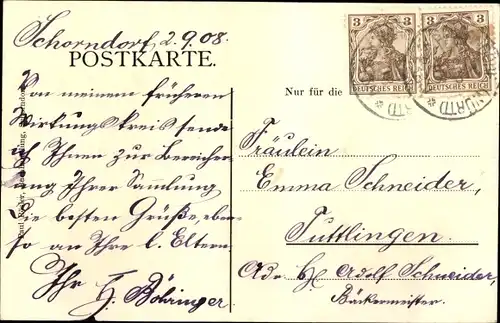 Schorndorf 2.9.08.
POSTKARTE.
3 3
DEUTSCHES REICH DEUTSCHES REICH
Nur für die
Von meinem früheren
Wirkungskreis sende
ich Ihnen zur Bereicher-
ung Ihrer Sammlung
die besten Grüße, eben-
so an Ihre l. Eltern.
Ihr H. Böhringer
Fräulein
Emma Schneider,
Tuttlingen.
Adr. H. Adolf Schneider,
Bäckermeister.